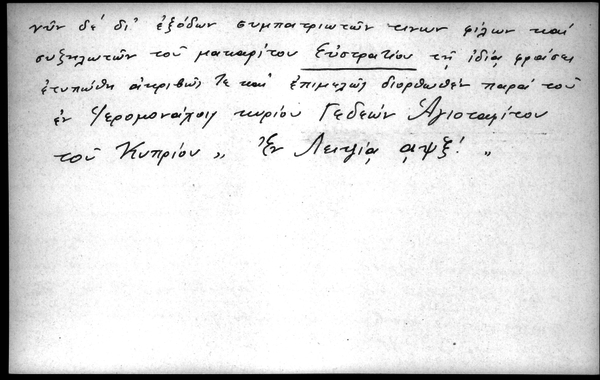 νῦν δέ δι' ἐξόδων συμπατριωτῶν τινων φίλων καί
συζηλωτῶν τοῦ μακαρίτου Εὐστρατίου τῇ ἰδίᾳ φράσει
ἐτυπώθη ἀκριβῶς τε καί ἐπιμελῶς διορθωθέν παρά τοῦ
ἐν Ἱερομονάχοις κυρίου Γεδεών Ἁγιοταφίτου
τοῦ Κυπρίου „ Ἐν Λειψίᾳ αψξ! „